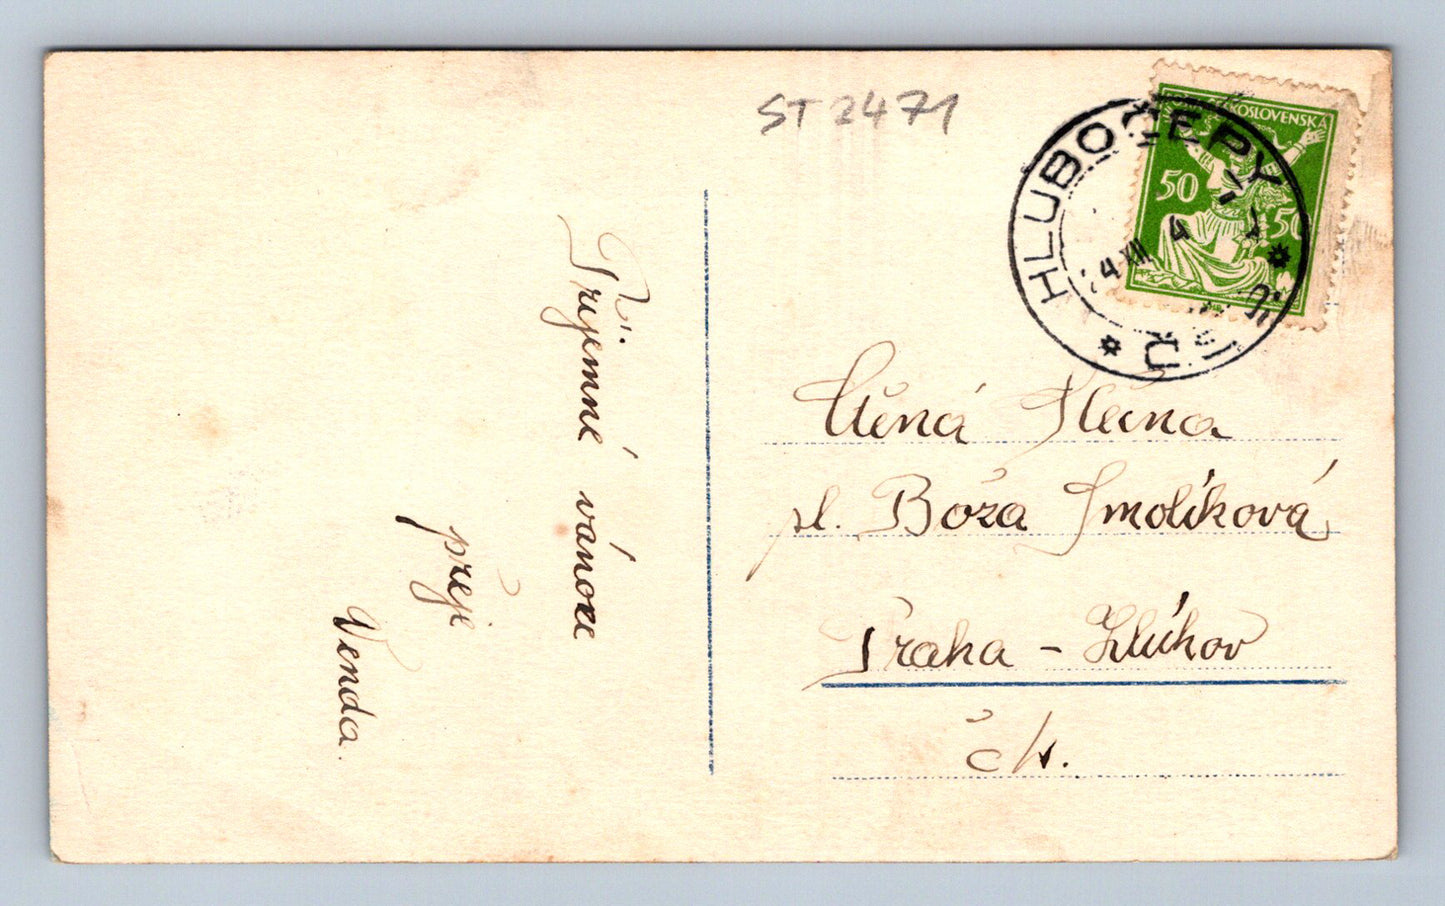 ST 2471
HLUBOČEPY
ČESKOSLOVENSKÁ
50
50
4 XII
4
Příjemné vánoce
přeje
Venda.
Ctěná Slečna
sl. Boža Smolíková,
Praha - Zlíchov
čk.